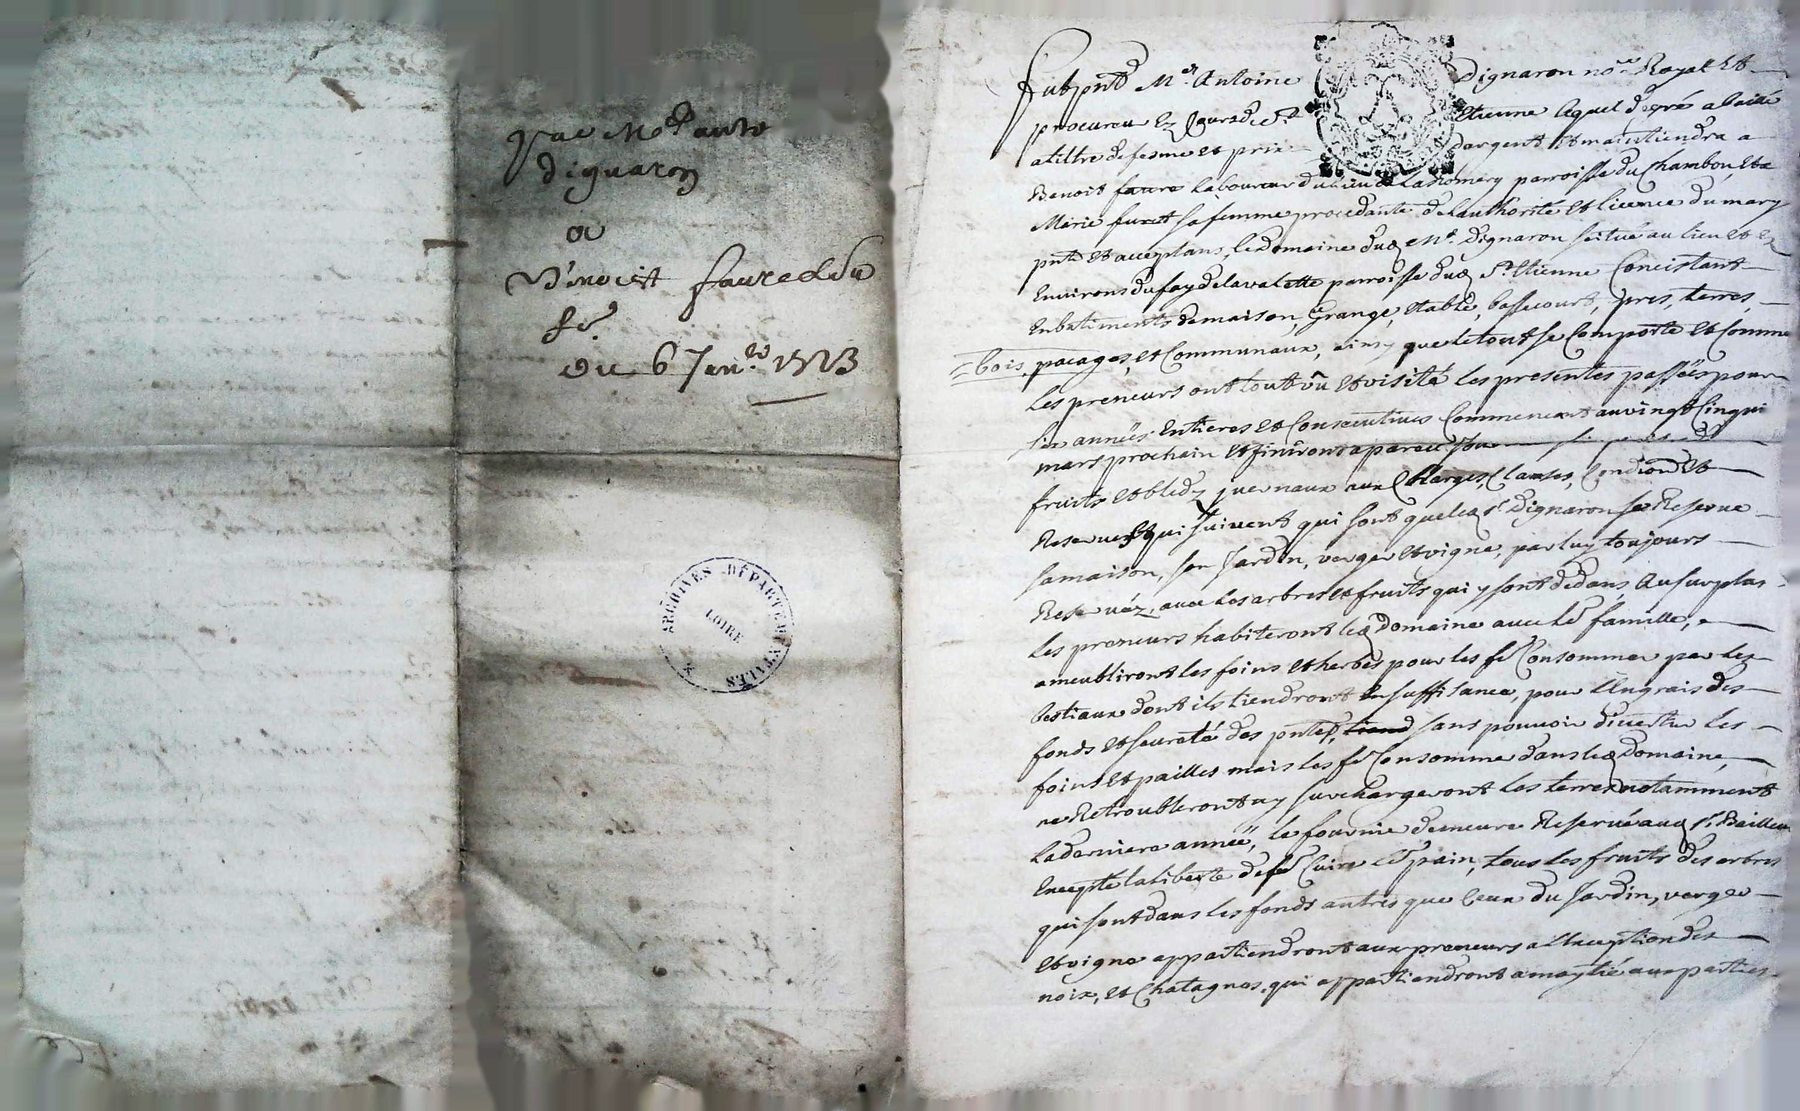 par Me ante
dignaron
a
Benoist faure et sa
fe
du 6 Janer 1723
ARCHIVES DÉPARTEMENTALES
LOIRE
fut pnt Me Antoine Dignaron nore Royal Et
procureur Ez Cours de St Etienne lequel de gré a baillé
a tiltre de ferme et prix dargent Et maintiendra a
Benoit faure Laboureur du lieu de parroisse du Chambon, Et a
Marie furet sa femme procedante de Lauthorité Et licence du mary
pnts Et acceptans, le domaine dud Me Dignaron scitué au lieu Et Ez
Environs du fay de la valette parroisse dud St Etienne Concistant
En batiments de maison, Grange, Etable, basse court, pres, terres,
bois, pacages, et Communaux, ainsy que le tout se Comporte Et Comme
Les preneurs ont tout vû Et visité les presentes passées pour
six années Entieres Et Consecutives Commencant au vingt Cinq
mars prochain Et finiront a pareil Jour
fruits Et bledz yvernaux aux Charges, Clauses, Et
Reserves qui suivent qui sont que led Sr Dignaron se Reserve
sa maison, son Jardin, verger Et vigne, par luy toujours
Reservéz, avec Les arbres Et fruits qui y sont dedans, Au surplus
Les preneurs habiteront led Domaine avec Lr famille,
ameubliront les foins Et herbes pour les fe Consommer par les
bestiaux dont ils tiendront En suffisance, pour L'Engrais des
fonds Et seureté des pntes, sans pouvoir divertir les
foins Et pailles mais les fe Consommer dans led Domaine,
ne Retroubleront ny surchargeront Les terres notamment
La derniere année, le fournie demeure Reservé aud Sr Bailleur
Excepté la liberté de fe Cuire Lr pain, tous les fruits des arbres
qui sont dans les fonds autres que Ceux du Jardin, verger
Et vigne appartiendront aux preneurs a L'Exception des
noix, et Chatagnes, qui appartiendront a moytié aux parties